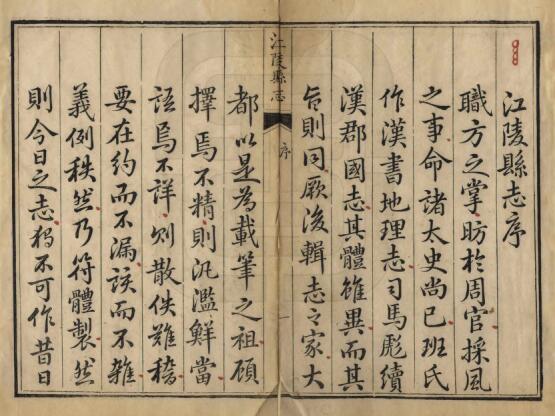 江陵縣志序
職方之掌昉於周官採風
之事命諸太史尚已班氏
作漢書地理志司馬彪續
漢郡國志其體雖異而其
旨則同厥後輯志之家大
江陵縣志
序
都以是為載筆之祖顧
擇焉不精則汎濫鮮當
語焉不詳則散佚難稽
要在約而不漏該而不雜
義例秩然乃符體製然
則今日之志猶不可作昔日